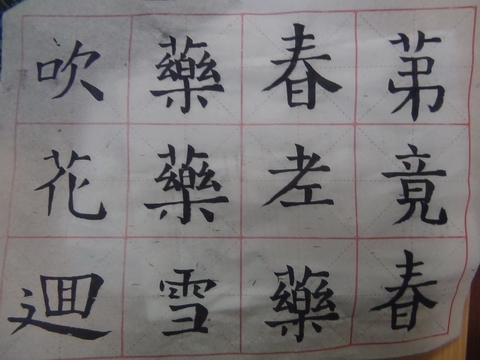 苐竟春
春老藥
藥藥雪
吹花迴